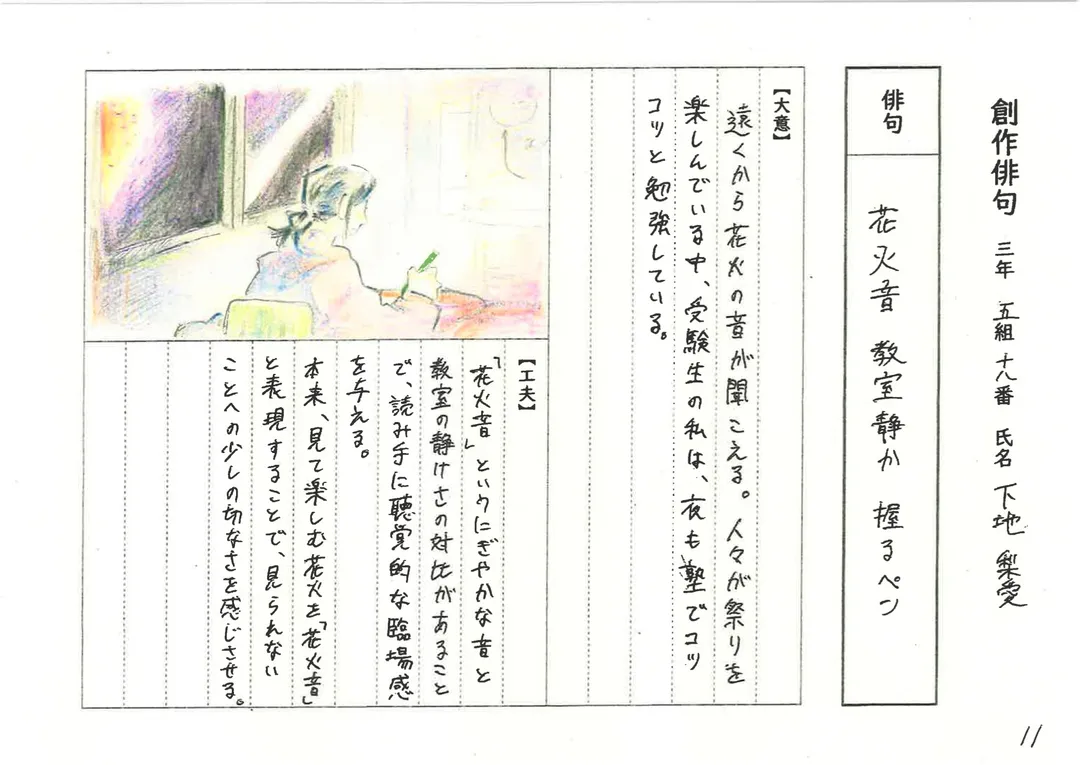 創作俳句 三年 五組 十八番 氏名 下地 梨愛
俳句
花火音 教室静か 握るペン
【大意】
遠くから花火の音が聞こえる。人々が祭りを
楽しんでいる中、受験生の私は、夜も塾でコツ
コツと勉強している。
【工夫】
「花火音」というにぎやかな音と
教室の静けさの対比があること
で、読み手に聴覚的な臨場感
を与える。
本来、見て楽しむ花火を「花火音」
と表現することで、見られない
ことへの少しの切なさを感じさせる。
11